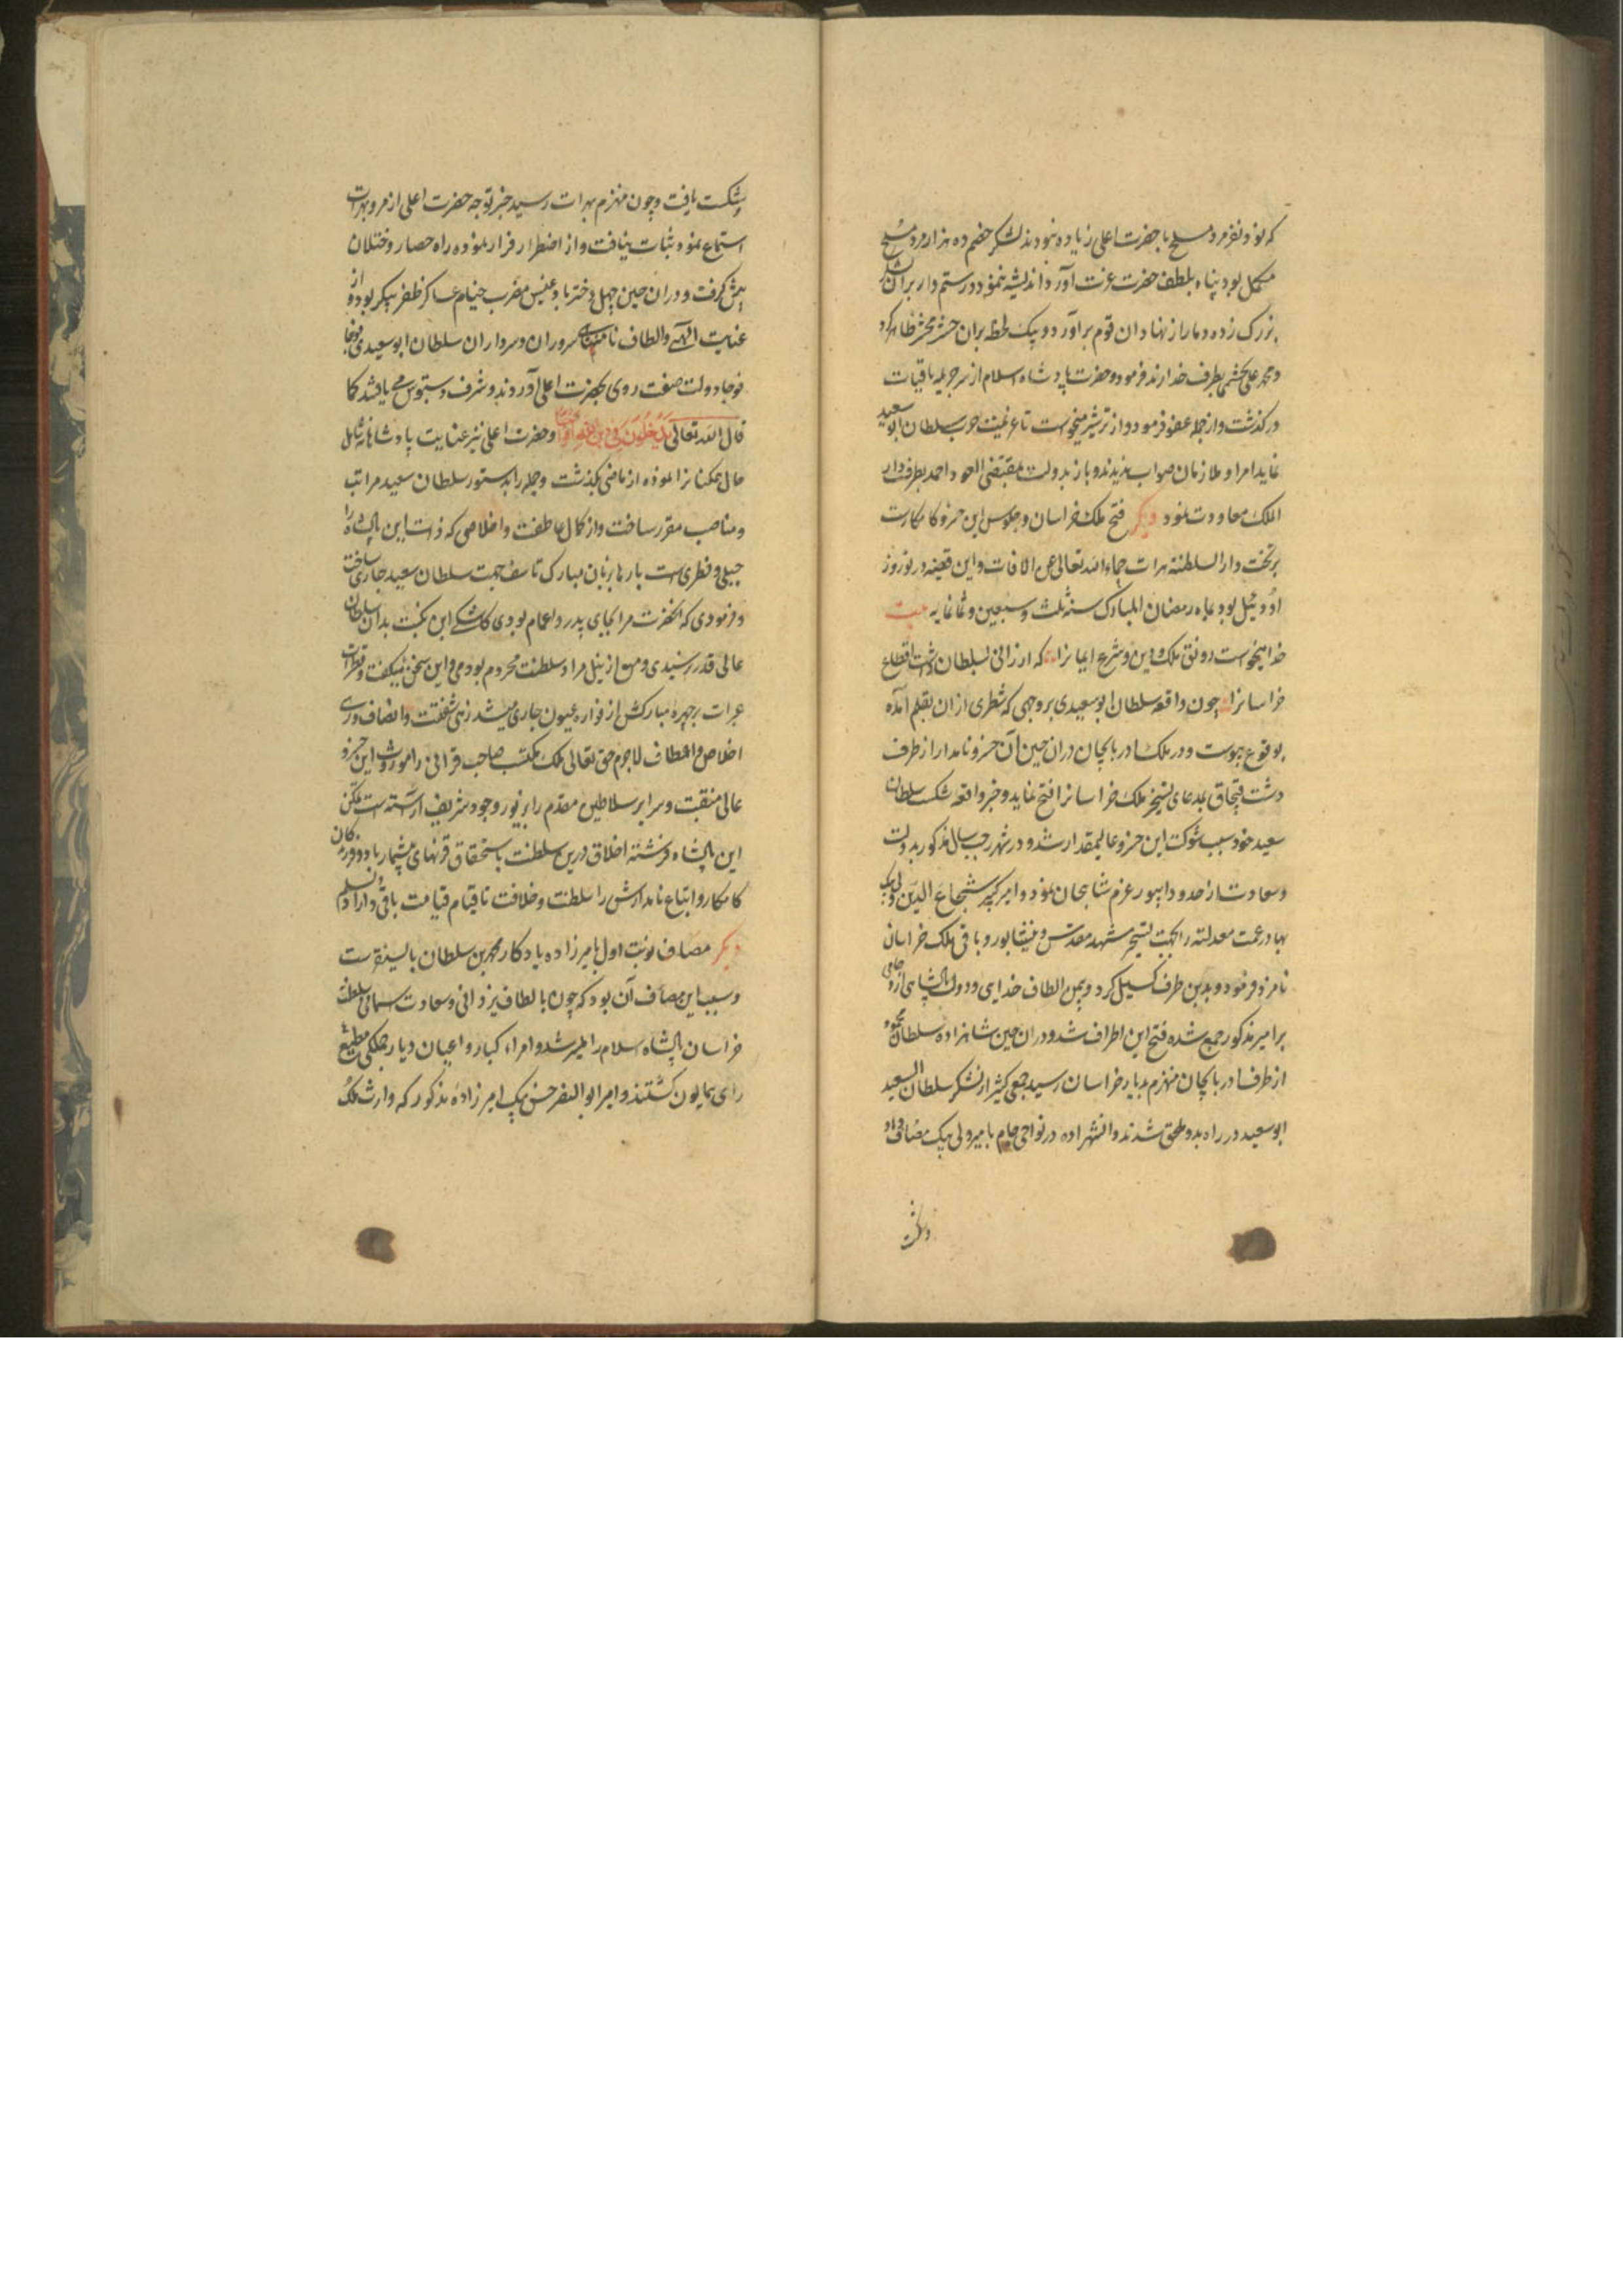 که نود نفر مرد مسلح با حضرت اعلی زیاده نبودند لشکر خصم ده هزار مرد مسلح
مکمل بود پناه بلطف حضرت عزت آورد اندیشه ننمود و رستم وار بران لشکر
بزرک زده دمار از نهاد ان قوم براورد و بیک لحظه بران حشر محشر ظاهر کرد
و محمد علی بخشی بطرف خدارند فرمود و حضرت پادشاه اسلام از سر جریمه باقیات
درکذشت و از جمله عفو فرمود و از ترشیز میخواست تا عزیمت حرب سلطان ابوسعید
نماید امرا و ملازمان صواب ندیدند و باز بدولت بمقتضی العود احمد بطرف دار
الملک معاودت نمود دیکر فتح ملک خراسان و جلوس این خسرو کامکارست
بر تخت دار السلطنه هرات حماه الله تعالی عن الافات و این قضیه در نوروز
اود ئیل بود بماه رمضان المبارک سنه ثلث و سبعین و ثمانمایه بیت
خدا بخواست رونق ملک و دین و شرع ایمانرا که ارزانی بسلطان داشت اقطاع
خراسانرا چون واقعه سلطان ابوسعیدی بر وجهی که شطری از ان بقلم آمده
بوقوع پیوست و در ملک ادربایجان دران حین آن خسرو نامدار از طرف
دشت قبچاق بمدعای تسخیر ملک خراسانرا فتح نماید و خبر واقعه شکست سلطان
سعید خود سبب شوکت این خسرو عالیمقدار شد و در شهر رجب سال مذکور بدولت
و سعادت از حدود ابیورد عزم شابجان نمود و امیر کبیر شجاع الدین ولی بیک
بهادر عمت معدلته را بجهت تسخیر مشهد مقدس و نیشابور و باقی ملک خراسان
نامزد فرمود و بدین طرف کسیل کرد و بیمن الطاف خدای و دولت پادشاهی
بر امیر مذکور جمع شده فتح این اطراف شد و دران حین شاهزاده سلطان محمود
از طرف ادربایجان منهزم بدیار خراسان رسید جمعی کثیر از لشکر سلطان السعید
ابوسعید در راه بدو ملحق شدند و انشهزاده در نواحی جام با میر ولی بیک مصاف داد
وشکست
وشکست یافت و چون منهزم بهرات رسید خبر توجه حضرت اعلی از مرو بهرات
استماع نمود ثبات نیافت و از اضطرار فرار نموده راه حصار و ختلان
پیش کرفت و دران حین چهل دختر بادغیس مضرب خیام عساکر ظفر پیکر بود و از
عنایت الهی و الطاف نامتناهی سروران و سرداران سلطان ابوسعیدی فوجا
فوجا دولت صفت روی بحضرت اعلی آوردند و شرف دستبوس می یافتند کما
قال الله تعالی یدخلون فی دین الله افواجا و حضرت اعلی نیز عنایت پادشاهانه شامل
حال همکنانرا نموده از ماضی بگذشت و جمله را بدستور سلطان سعید مراتب
و مناصب مقرر ساخت و از کمال عاطفت و اخلاصی که ذات این پادشاه را
جبلی و فطری است بارها بزبان مبارک تاسف جهت سلطان سعید جاری ساخت
و فرمودی که انحضرت مرا بجای پدر و اعمام بودی کاشکی این نکبت بدان سلطان
عالی قدر نرسیدی و من از نیل مراد سلطنت محروم بودمی و این سخن میکفت و قطرات
عبرات بر چهره مبارکش از فواره عیون جاری میشد زهی شفقت و انصاف و زهی
اخلاص و الطاف لاجرم حق تعالی ملک مکتسب صاحب قرانی را موروث این خسرو
عالی منقبت و سرایر سلاطین مقدم را بنور وجود شریف اراسته است
این پادشاه فرشته اخلاق درین سلطنت باستحقاق قرنهای بیشمار باد و
کامکار و اتباع نامدارش را سلطنت و خلافت تا قیام قیامت باقی داراد
دیکر مصاف نوبت اول بامیرزاده یادکار محمد بن سلطان بایسنقرست
و سبب این مصاف آن بود که چون بالطاف یزدانی و سعادت سمائی سلطنت
خراسان پادشاه اسلام را میسر شد و امراء کبار و اعیان دیار جملکی مطیع
رای همایون کشتند و امیر ابو النصر حسن بیک امیرزاده مذکور که وارث ملک